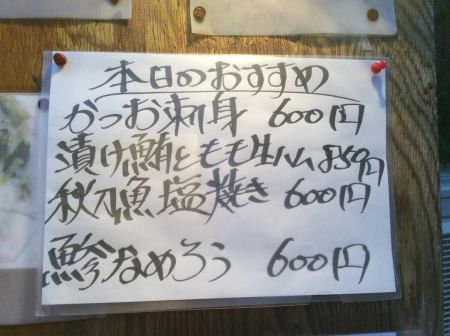 本日のおすすめ
かつお刺身 600円
漬け鮪ともも生ハム 850円
秋刀魚塩焼き 600円
鯵なめろう 600円